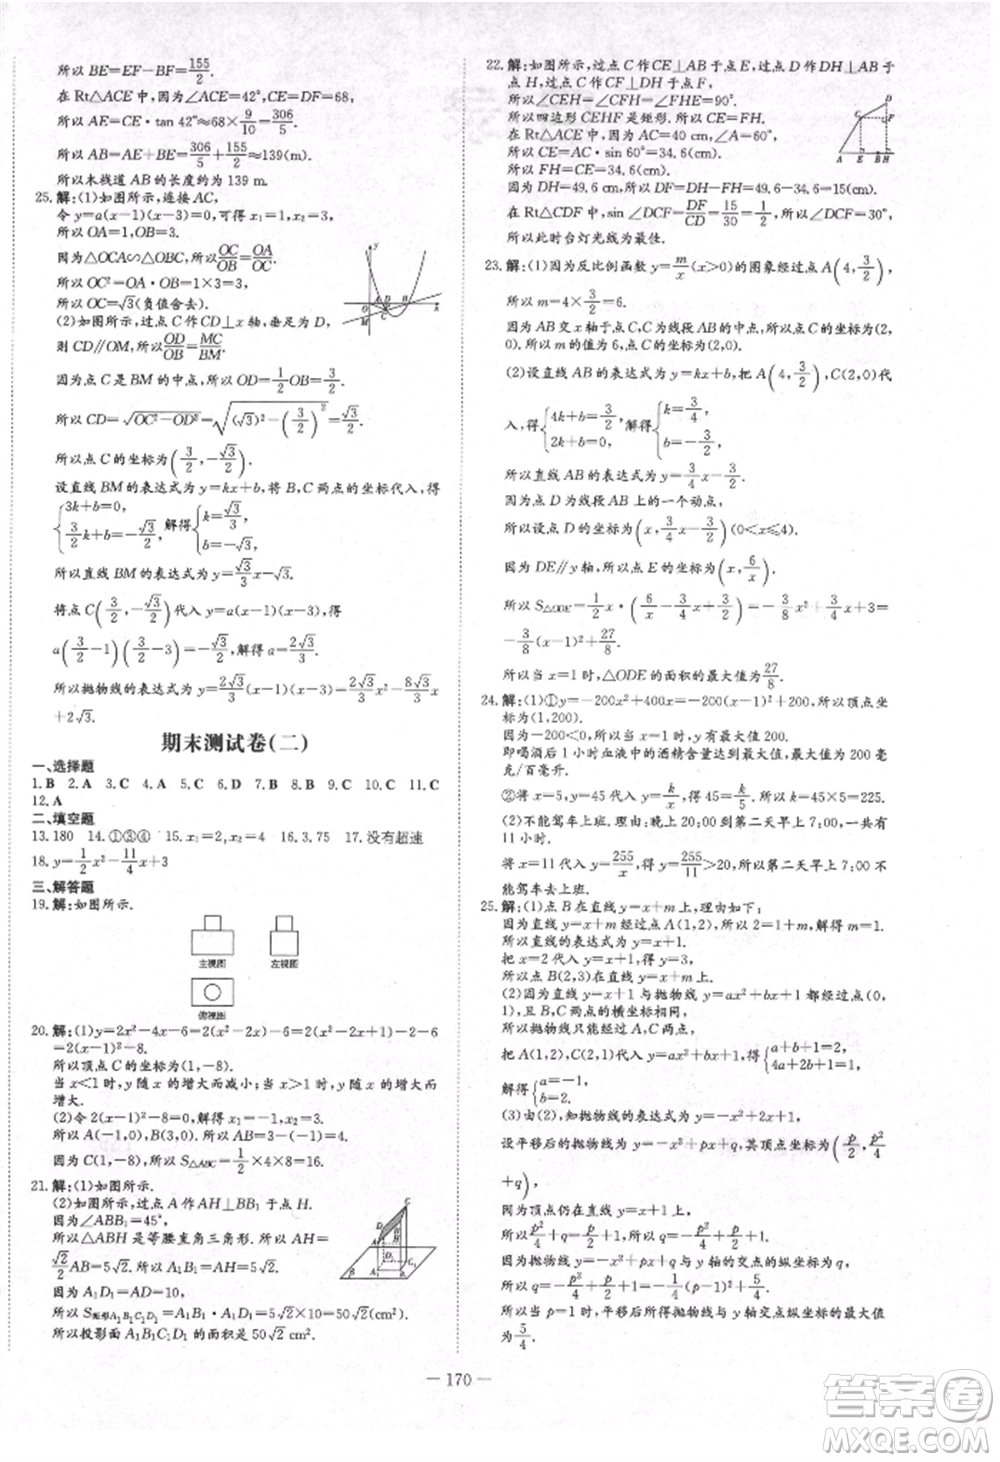 所以 BE=EF-BF=155/2.
在 Rt△ACE 中,因为∠ACE=42°,CE=DF=68,
所以 AE=CE·tan 42°≈68×9/10=306/5.
所以 AB=AE+BE=306/5+155/2≈139(m).
所以木栈道 AB 的长度约为 139 m.
25.解:(1)如图所示,连接 AC,
令 y=a(x-1)(x-3)=0,可得 x₁=1,x₂=3.
所以 OA=1,OB=3.
因为△OCA∽△OBC,所以OC/OB=OA/OC.
所以 OC²=OA·OB=1×3=3.
所以 OC=√3(负值舍去).
(2)如图所示,过点 C 作 CD⊥x 轴,垂足为 D,
则 CD∥OM,所以OD/OB=MC/BM.
因为点 C 是 BM 的中点,所以 OD=1/2OB=3/2.
所以 CD=√(OC²-OD²)=√((√3)²-(3/2)²)=√3/2.
所以点 C 的坐标为(3/2,-√3/2).
设直线 BM 的表达式为 y=kx+b,将 B,C 两点的坐标代入,得
{3k+b=0, 3/2k+b=-√3/2, 解得{k=√3/3, b=-√3.
所以直线 BM 的表达式为 y=√3/3x-√3.
将点 C(3/2,-√3/2)代入 y=a(x-1)(x-3),得
a(3/2-1)(3/2-3)=-√3/2,解得 a=2√3/3.
所以抛物线的表达式为 y=2√3/3(x-1)(x-3)=2√3/3x²-8√3/3x
+2√3.
期末测试卷(二)
一、选择题
1.B 2.A 3.C 4.A 5.C 6.D 7.B 8.B 9.A 10.B 11.C
12.A
二、填空题
13.180 14.①③④ 15.x₁=2,x₂=4 16.3.75 17.没有超速
18.y=1/2x²-11/4x+3
三、解答题
19.解:如图所示.
主视图 左视图
俯视图
20.解:(1)y=2x²-4x-6=2(x²-2x)-6=2(x²-2x+1)-2-6
=2(x-1)²-8.
所以顶点 C 的坐标为(1,-8).
当 x<1 时,y 随 x 的增大而减小;当 x>1 时,y 随 x 的增大而
增大.
(2)令 2(x-1)²-8=0,解得 x₁=-1,x₂=3.
所以 A(-1,0),B(3,0).所以 AB=3-(-1)=4.
因为 C(1,-8),所以 S△ABC=1/2×4×8=16.
21.解:(1)如图所示.
(2)如图所示,过点 A 作 AH⊥BB₁于点 H.
因为∠ABB₁=45°,
所以△ABH 是等腰直角三角形.所以 AH=
√2/2AB=5√2.所以 A₁B₁=AH=5√2.
因为 A₁D₁=AD=10,
所以 S矩形A₁B₁C₁D₁=A₁B₁·A₁D₁=5√2×10=50√2(cm²).
所以投影面 A₁B₁C₁D₁的面积是 50√2 cm².
22.解:如图所示,过点 C 作 CE⊥AB 于点 E,过点 D 作 DH⊥AB 于
点 H,过点 C 作 CF⊥DH 于点 F,
所以∠CEH=∠CFH=∠FHE=90°.
所以四边形 CEHF 是矩形.所以 CE=FH.
在 Rt△ACE 中,因为 AC=40 cm,∠A=60°,
所以 CE=AC·sin 60°=34.6(cm).
所以 FH=CE=34.6(cm).
因为 DH=49.6 cm,
所以 DF=DH-FH=49.6-34.6=15(cm).在
Rt△CDF 中,sin∠DCF=DF/CD=15/30=1/2,所以∠DCF=30°,
所以此时台灯光线为最佳.
23.解:(1)因为反比例函数 y=m/x(x>0)的图象经过点 A(4,3/2),
所以 m=4×3/2=6.
因为 AB 交 x 轴于点 C,点 C 为线段 AB 的中点,所以 C(2,
0).所以 m 的值为 6,点 C 的坐标为(2,0).
(2)设直线 AB 的表达式为 y=kx+b,把 A(4,3/2),C(2,0)代
入,得{4k+b=3/2, 2k+b=0, 解得{k=3/4, b=-3/2.
所以直线 AB 的表达式为 y=3/4x-3/2.
因为点 D 为线段 AB 上的一个动点,
所以设点 D 的坐标为(x,3/4x-3/2)(0<x≤4).
因为 DE∥y 轴,所以点 E 的坐标为(x,6/x).
所以 S△ODE=1/2x·(6/x-3/4x+3/2)=-3/8x²+3/4x+3=
-3/8(x-1)²+27/8.
所以当 x=1 时,△ODE 的面积的最大值为27/8.
24.解:(1)①y=-200x²+400x=-200(x-1)²+200,所以顶点坐
标为(1,200).
因为-200<0,所以当 x=1 时,y 有最大值,y最大值=200.
即喝酒后 1 小时血液中的酒精含量最大值,最大值为 200 毫
克/百毫升.
②将 x=5,y=45 代入 y=k/x,得 45=k/5.所以 k=45×5=225.
(2)不能驾车上班.理由:晚上 20:00 到第二天早上 7:00,一共有
11 小时.
将 x=11 代入 y=255/x,得 y=255/11>20,所以第二天早上 7:00 不
能驾车去上班.
25.解:(1)点 B 在直线 y=x+m 上,理由如下:
因为直线 y=x+m 经过点 A(1,2),所以 2=1+m.所以 m=1.
所以直线的表达式为 y=x+1.
把 x=2 代入 y=x+1,得 y=3.
所以 B(2,3)在直线 y=x+m 上.
(2)因为直线 y=x+1 与抛物线 y=ax²+bx+1 都经过点(0,
1),且 B,C 两点的横坐标相同,
所以抛物线只能经过 A,C 两点,
把 A(1,2),C(2,1)代入 y=ax²+bx+1,得{a+b+1=2, 4a+2b+1=1,
解得{a=-1, b=2.
(3)由(2),知抛物线的表达式为 y=-x²+2x+1,
设平移后的抛物线为 y=-x²+px+q,其顶点坐标为(p/2,p²/4
+q),
因为顶点仍在直线 y=x+1 上,
所以p²/4+q=p/2+1.所以 q=-p²/4+p/2+1.
因为抛物线 y=-x²+px+q 与 y 轴的交点的纵坐标为 q,
所以 q=-p²/4+p/2+1=-1/4(p-1)²+5/4.
所以当 p=1 时,平移后所得抛物线与 y 轴交点纵坐标的最大值
为5/4.
— 170 —
答案卷
MXQE.COM